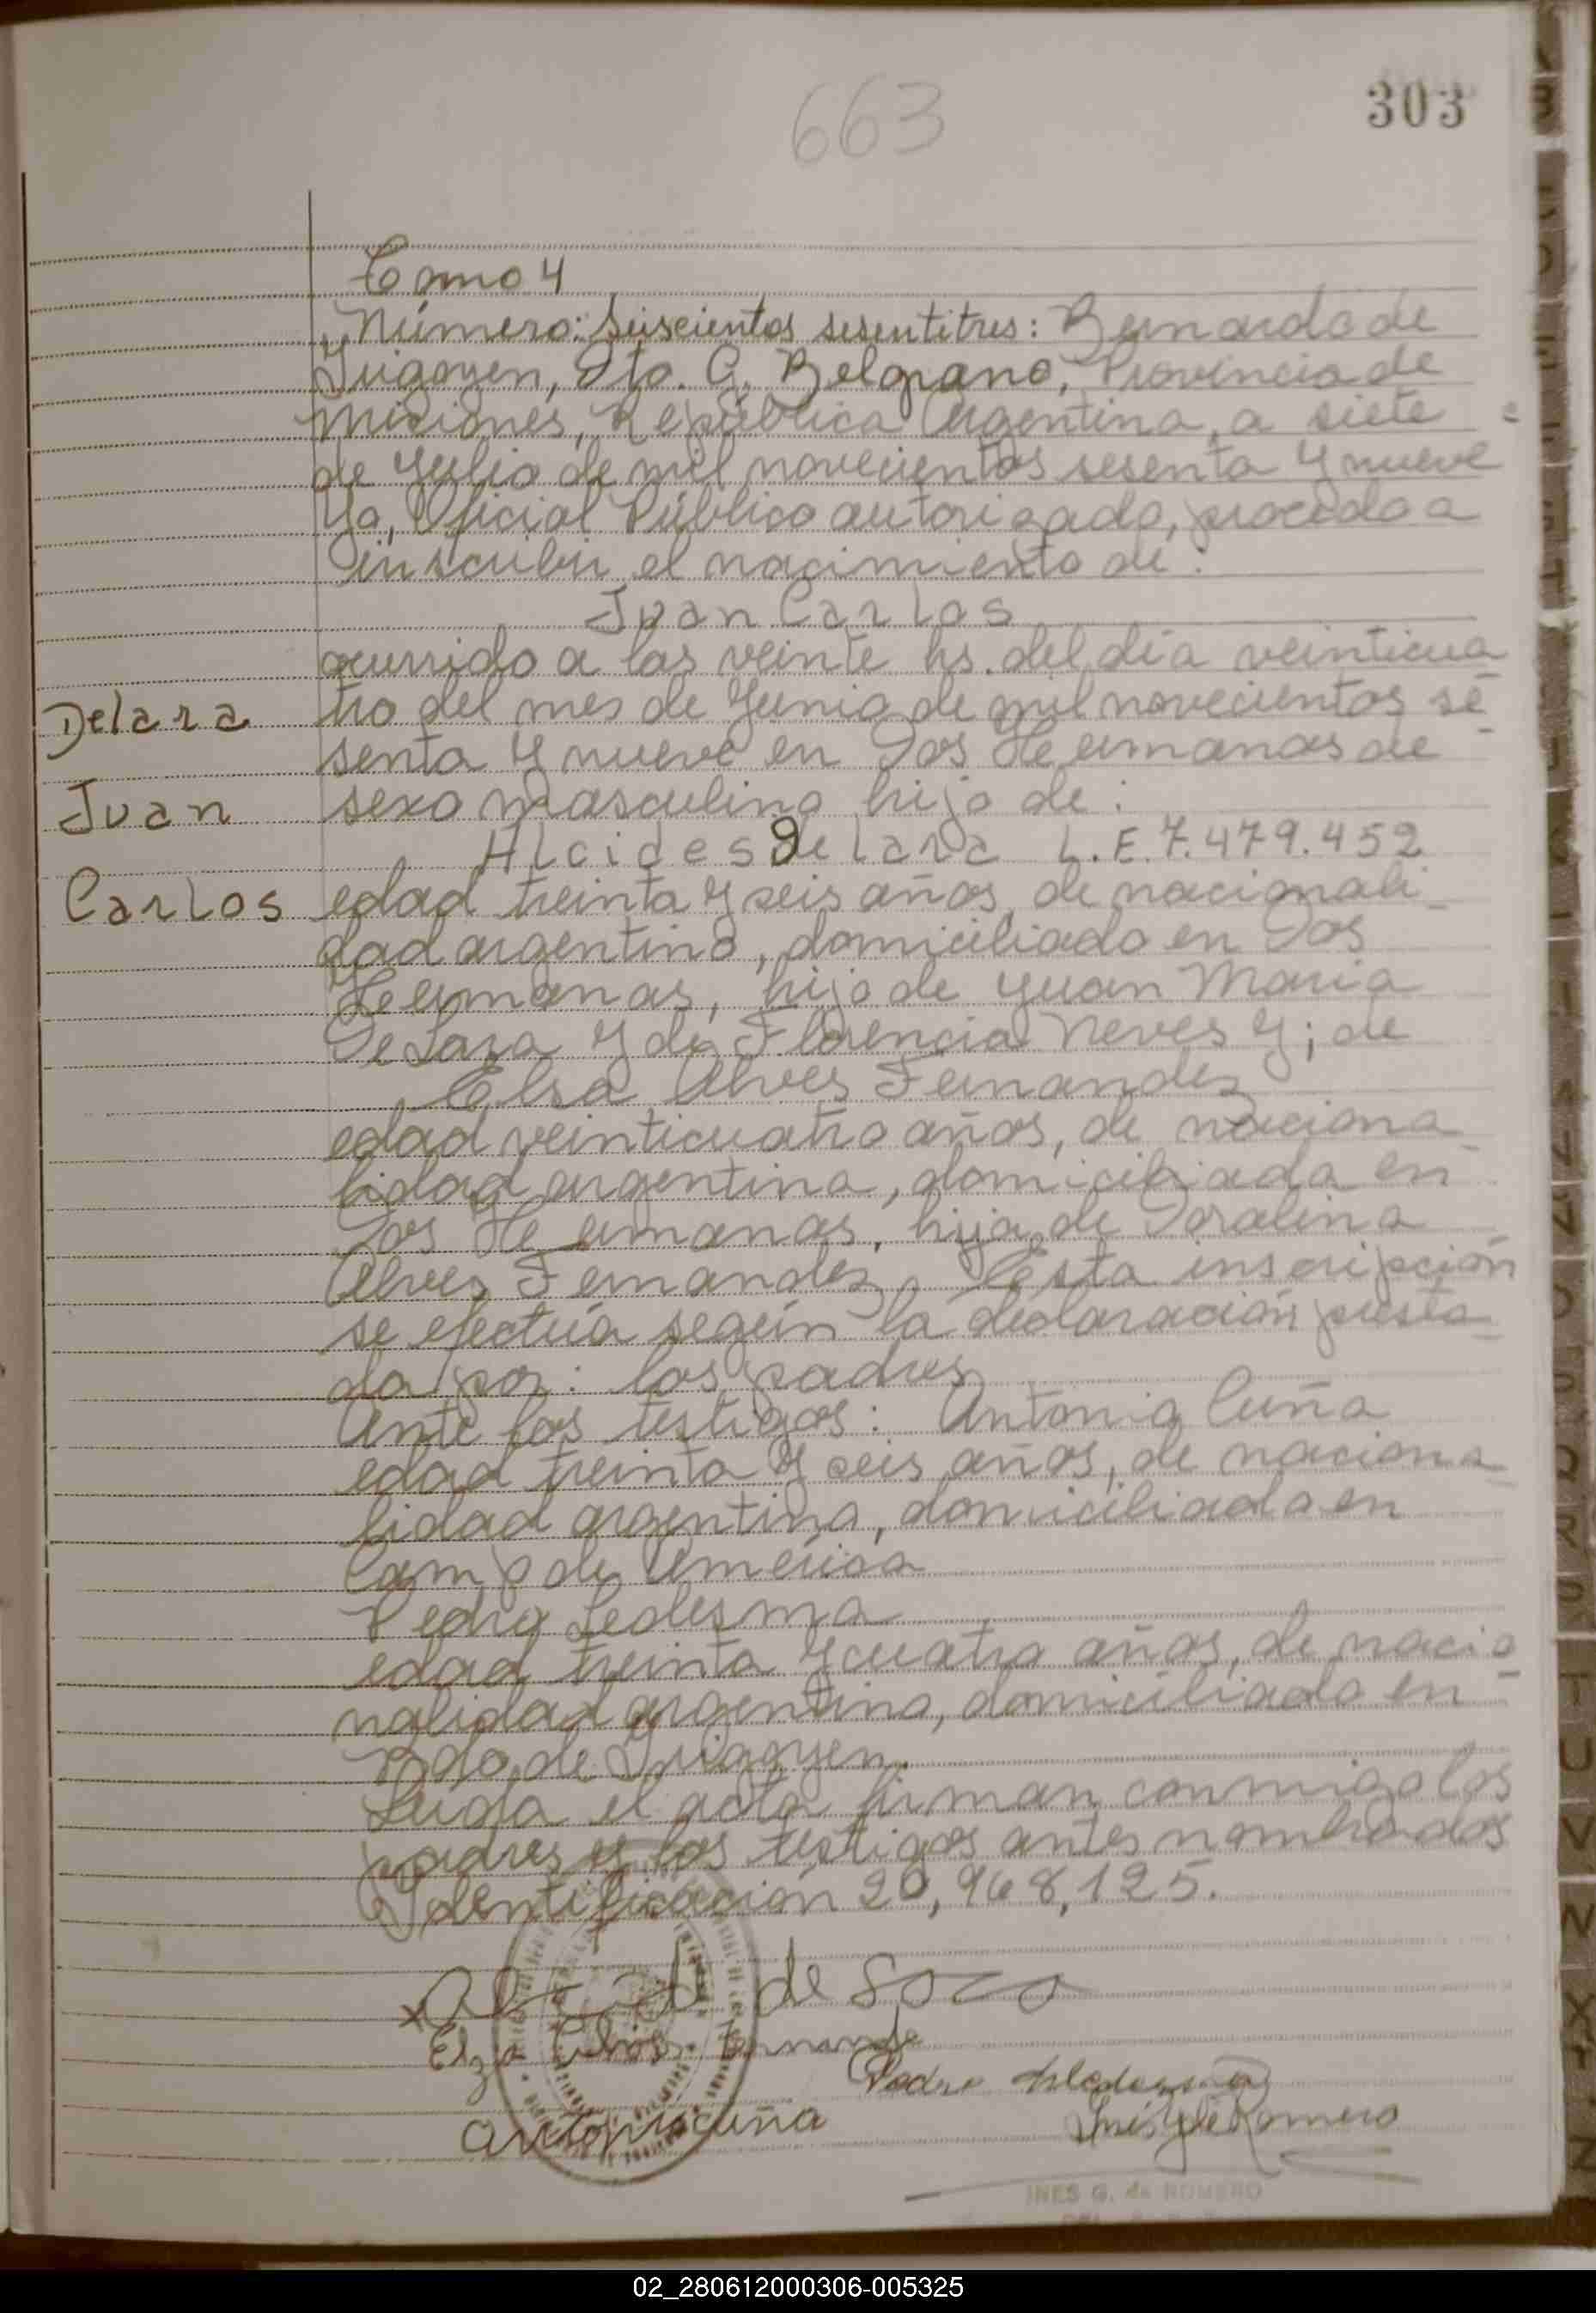 663
303
Tomo 4
Número: Seiscientos sesentitres: Bernardo de
Irigoyen, Dto. G. Belgrano, Provincia de
Misiones, República Argentina, a siete
de Julio de mil novecientos sesenta y nueve
Yo, Oficial Público autorizado, procedo a
inscribir el nacimiento de:
Juan Carlos
ocurrido a las veinte hs. del día veinticua
tro del mes de Junio de mil novecientos se
senta y nueve en Dos Hermanas de
sexo masculino hijo de:
Alcides De Lara L.E. 7.479.452
edad treinta y seis años, de nacionali
dad argentino, domiciliado en Dos
Hermanas, hijo de Juan Maria
De Lara y de Florencia Neves y; de
Elsa Alves Fernandez
edad veinticuatro años, de naciona
lidad argentina, domiciliada en
Dos Hermanas, hija de Doralina
Alves Fernandez. Esta inscripción
se efectúa según la declaración presta
da por: los padres
Ante los testigos: Antonia Cuña
edad treinta y seis años, de naciona
lidad argentina, domiciliada en
Campo de América
Pedro Ledesma
edad treinta y cuatro años, de nacio
nalidad argentino, domiciliado en
Bdo. de Irigoyen.
Leída el acta firman conmigo los
padres y los testigos antes nombrados
Identificación 20,968,125.
Delara
Juan
Carlos
de
Elza Fernande
Pedro
Antonia cuña
Inés G de Romero
INES G. de ROMERO
02_280612000306-005325